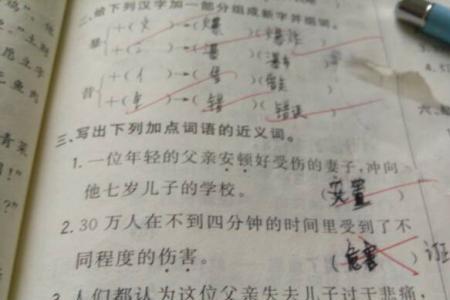 二、给下列汉字加一部分组成新字并组词。
暴 +(火)→(爆)(爆炸)
+( )→(瀑)(瀑布)
昔 +(亻)→(借)( )
+(钅)→(错)(错误)
三、写出下列加点词语的近义词。
1. 一位年轻的父亲安顿好受伤的妻子,冲向
他七岁儿子的学校。 (安置)
2. 30 万人在不到四分钟的时间里受到了不
同程度的伤害。 (危害)
3. 人们都认为这位父亲失去儿子过于悲痛,